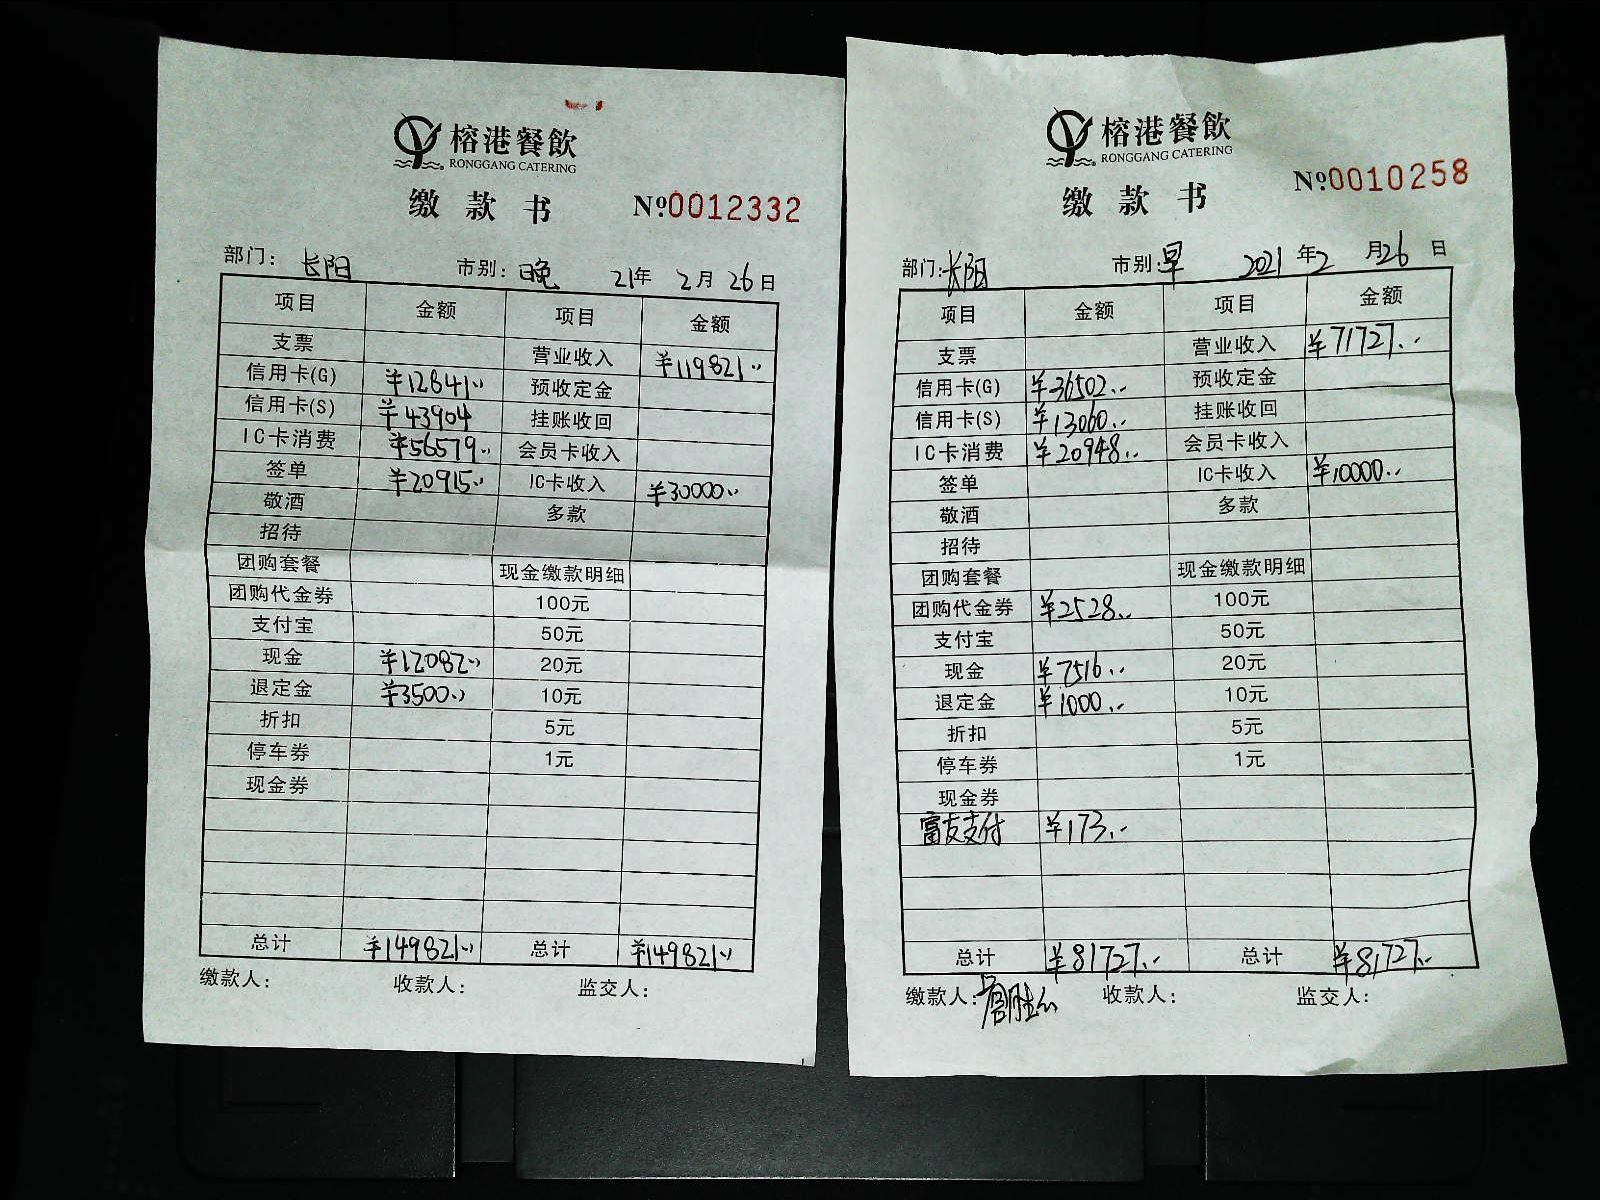 榕港餐飲
RONGGANG CATERING
缴款书 №0012332
部门：长阳 市别：晚 21年2月26日
项目 金额 项目 金额
支票 营业收入 ¥119821
信用卡(G) ¥12841 预收定金
信用卡(S) ¥43904 挂账收回
IC卡消费 ¥56579 会员卡收入
签单 ¥20915 IC卡收入 ¥30000
敬酒 多款
招待
团购套餐 现金缴款明细
团购代金券 100元
支付宝 50元
现金 ¥12082 20元
退定金 ¥3500 10元
折扣 5元
停车券 1元
现金券
总计 ¥149821 总计 ¥149821
缴款人： 收款人： 监交人：
榕港餐飲
RONGGANG CATERING
缴款书 №0010258
部门：长阳 市别：早 2021年2月26日
项目 金额 项目 金额
支票 营业收入 ¥71727
信用卡(G) ¥36502 预收定金
信用卡(S) ¥13060 挂账收回
IC卡消费 ¥20948 会员卡收入
签单 IC卡收入 ¥10000
敬酒 多款
招待
团购套餐 现金缴款明细
团购代金券 ¥2528 100元
支付宝 50元
现金 ¥7516 20元
退定金 ¥1000 10元
折扣 5元
停车券 1元
现金券
富友支付 ¥173
总计 ¥81727 总计 ¥81727
缴款人： 收款人： 监交人：